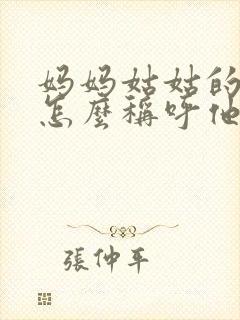 妈妈姑姑的
怎麼稱呼他
張仲平